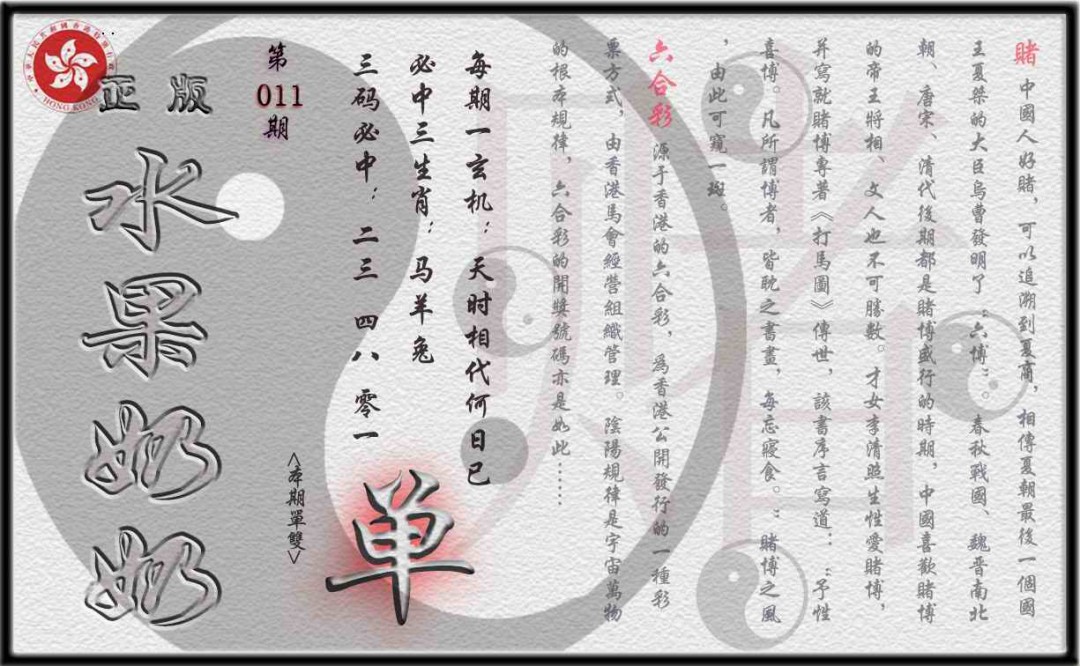 賭 中國人好賭，可以追溯到夏商，相傳夏朝最後一個國
王夏桀的大臣烏曹發明了“六博”。春秋戰國、魏晉南北
朝、唐宋、清代後期都是賭博盛行的時期，中國喜歡賭博
的帝王將相、文人也不可勝數。才女李清照生性愛賭博，
并寫就賭博專著《打馬圖》傳世，該書序言寫道：“予性
喜博。凡所謂博者，皆耽之晝晝，每忘寢食。”賭博之風
，由此可窺一斑。
六合彩 源于香港的六合彩，為香港公開發行的一種彩
票方式，由香港馬會經營組織管理。陰陽規律是宇宙萬物
的根本規律，六合彩的開獎號碼亦是如此……
每期一玄机：天时相代何日已
必中三生肖：马羊兔
三码必中：二三 四八 零一
单
<本期單雙>
第
011
期
正版
水果奶奶
HONG KONG